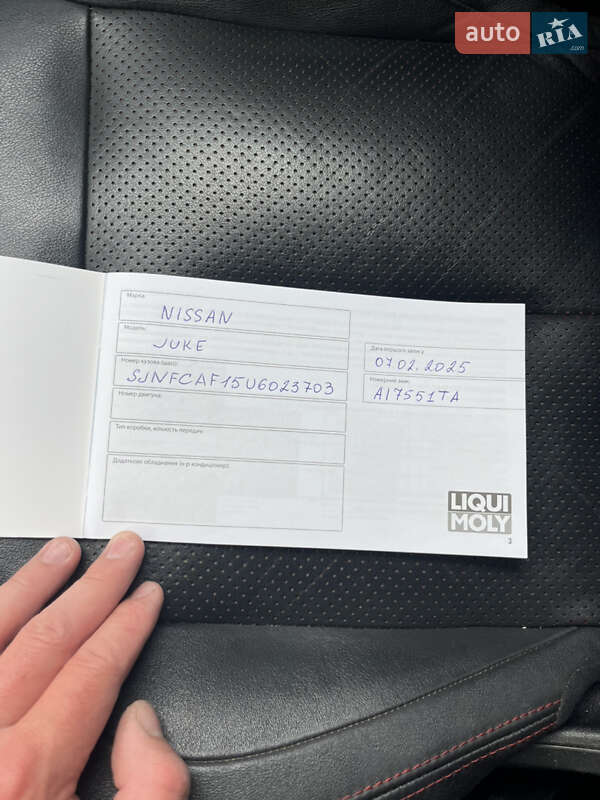 auto RIA.com
Марка:
NISSAN
Модель:
JUKE
Номер кузова (шасі):
SJNFCAF15U6023703
Номер двигуна:
Тип коробки, кількість передач:
Додаткове обладнання (н-р кондиціонер):
Дата першого запису
07.02.2025
Номерний знак:
AI7551TA
LIQUI
MOLY
3